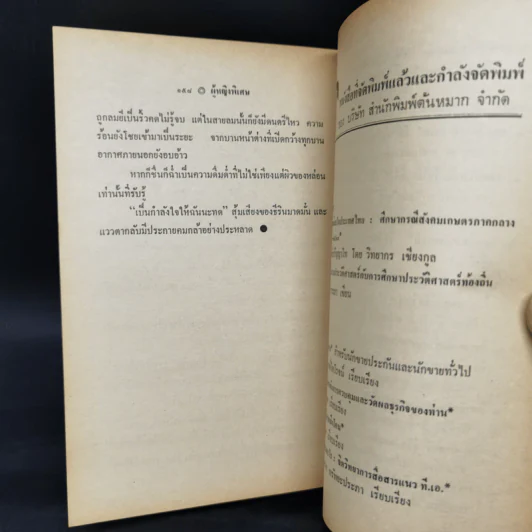 ๑๙๘ ผู้หญิงพิเศษ
ถูกลมยีเป็นริ้วคดไม่รู้จบ แต่ในสายลมนั้นก็ยังมีดนตรีไหว ความ
ร้อนยังโชยเข้ามาเป็นระยะ จากบานหน้าต่างที่เปิดกว้างทุกบาน
อากาศภายนอกยังอบอ้าว
หากก็ชื่นก็ฉ่ำเป็นความดื่มด่ำที่ไม่ใช่เพียงแต่ผิวของหล่อน
เท่านั้นที่รับรู้
“เป็นกำลังใจให้ฉันนะทด” สุ้มเสียงของธีรินมาดมั่น และ
แววตากลับมีประกายคมกล้าอย่างประหลาด ●
ที่จัดพิมพ์แล้วและกำลังจัดพิมพ์
บริษัท สำนักพิมพ์ต้นหมาก จำกัด
ประเทศไทย : ศึกษากรณีสังคมเกษตรภาคกลาง
โดย วิทยากร เชียงกูล
ประวัติศาสตร์กับการศึกษาประวัติศาสตร์ท้องถิ่น
เขียน
สำหรับนักขายประกันและนักขายทั่วไป
เรียบเรียง
ควบคุมและวัดผลธุรกิจของท่าน*
เรียบเรียง
: จิตวิทยาการสื่อสารแนว ที.เอ.*
เรียบเรียง